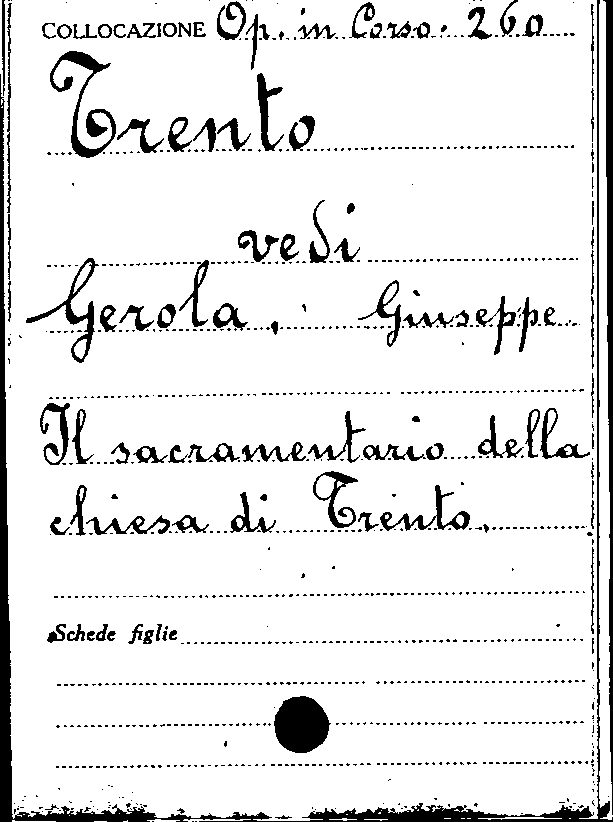 COLLOCAZIONE Op. in Corso. 260
Trento
vedi
Gerola, Giuseppe
Il sacramentario della
chiesa di Trento.
Schede figlie